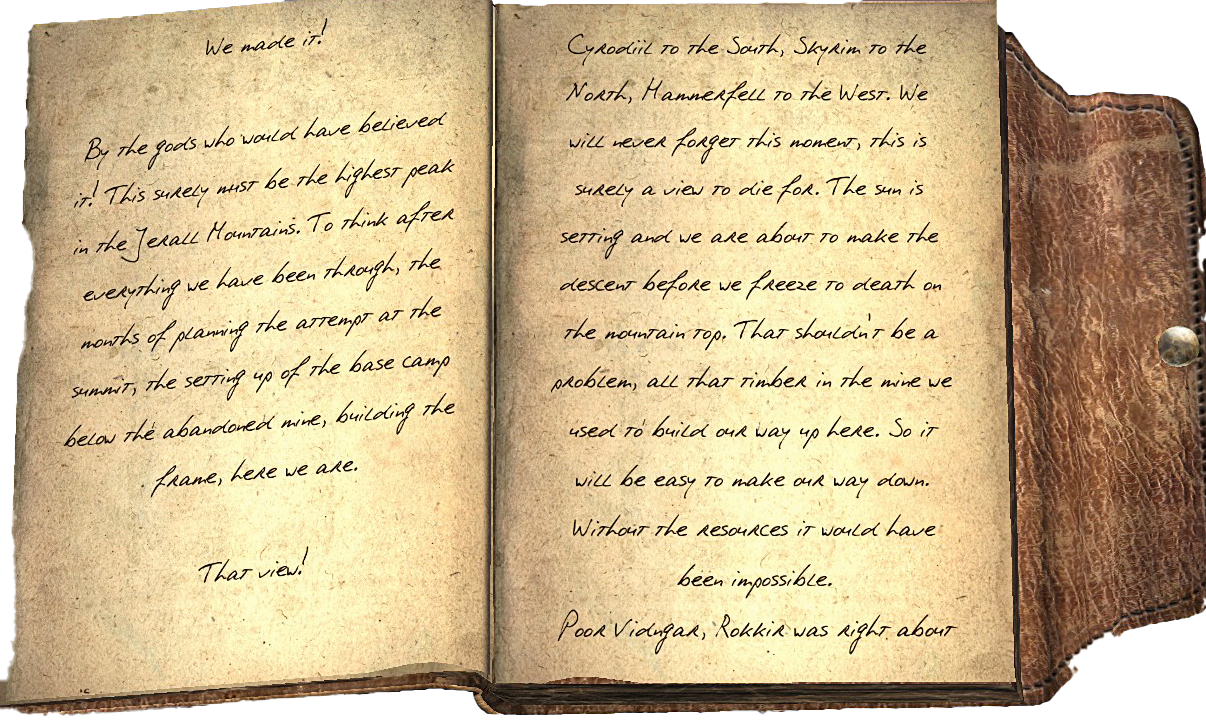 We made it!
By the gods who would have believed
it! This surely must be the highest peak
in the Jerall Mountains. To think after
everything we have been through, the
months of planning the attempt at the
summit, the setting up of the base camp
below the abandoned mine, building the
frame, here we are.
That view!
Cyrodiil to the South, Skyrim to the
North, Hammerfell to the West. We
will never forget this moment, this is
surely a view to die for. The sun is
setting and we are about to make the
descent before we freeze to death on
the mountain top. That shouldn't be a
problem, all that timber in the mine we
used to build our way up here. So it
will be easy to make our way down.
Without the resources it would have
been impossible.
Poor Vidngar, Rokkir was right about